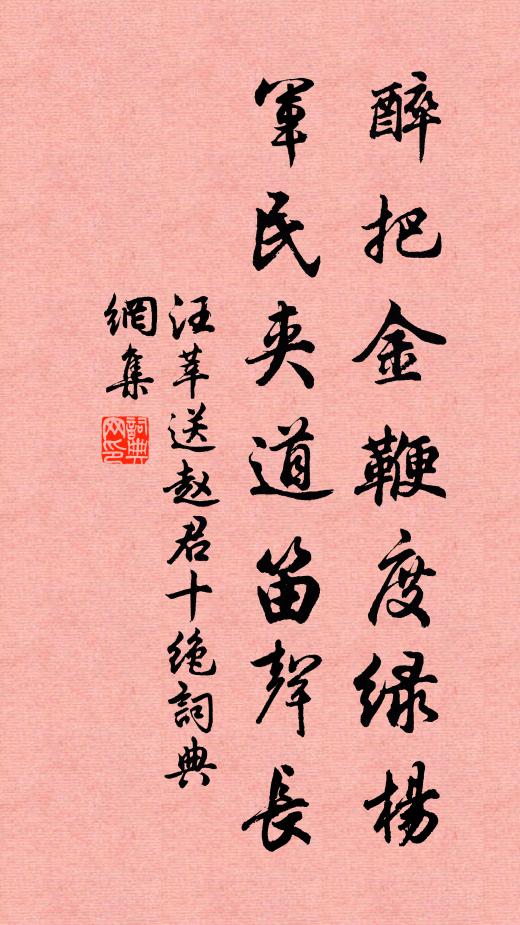 醉把金鞭度緑楊
軍民夾道笛聲長
汪莘送赵君十绝詞典
網集
詞典
网印